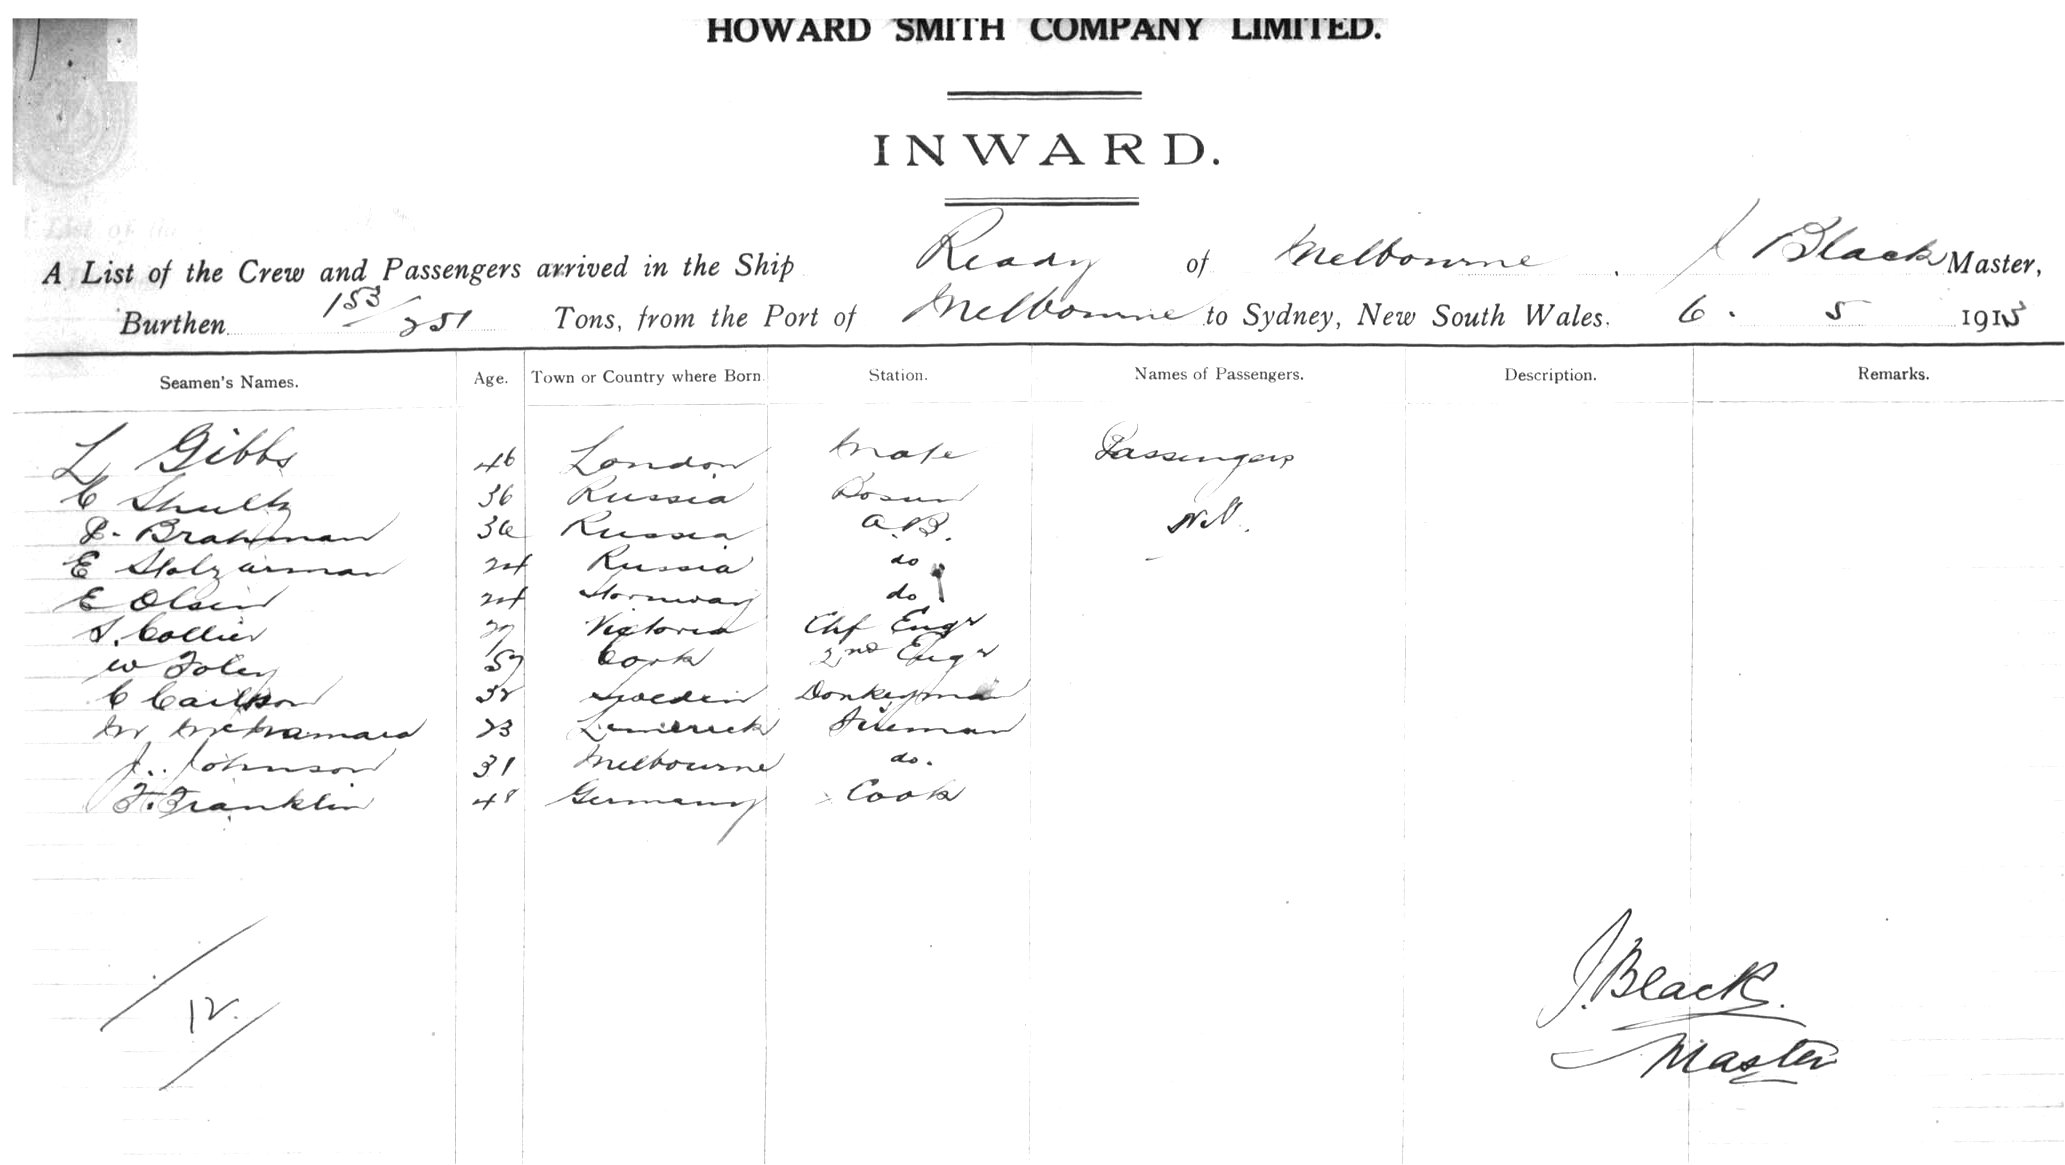 HOWARD SMITH COMPANY LIMITED.
INWARD.
A List of the Crew and Passengers arrived in the Ship Ready of Melbourne. J Black Master,
Burthen 153/251 Tons, from the Port of Melbourne to Sydney, New South Wales. 6. 5 1913
Seamen's Names. Age. Town or Country where Born. Station. Names of Passengers. Description. Remarks.
L Gibbs 46 London Mate Passengers
C Shultz 36 Russia Bosun
P. Brahman 36 Russia A.B. Nil.
E 24 Russia do
E Olsen 24 do
S. Collier Victoria Chf Engr
W Foley 57 Cork 2nd Engr
C Carlson 32 Sweden Donkeyman
M McNamara 23 Limerick Fireman
J. Johnson 31 Melbourne do.
F. Franklin 48 Germany Cook
12.
J. Black.
Master